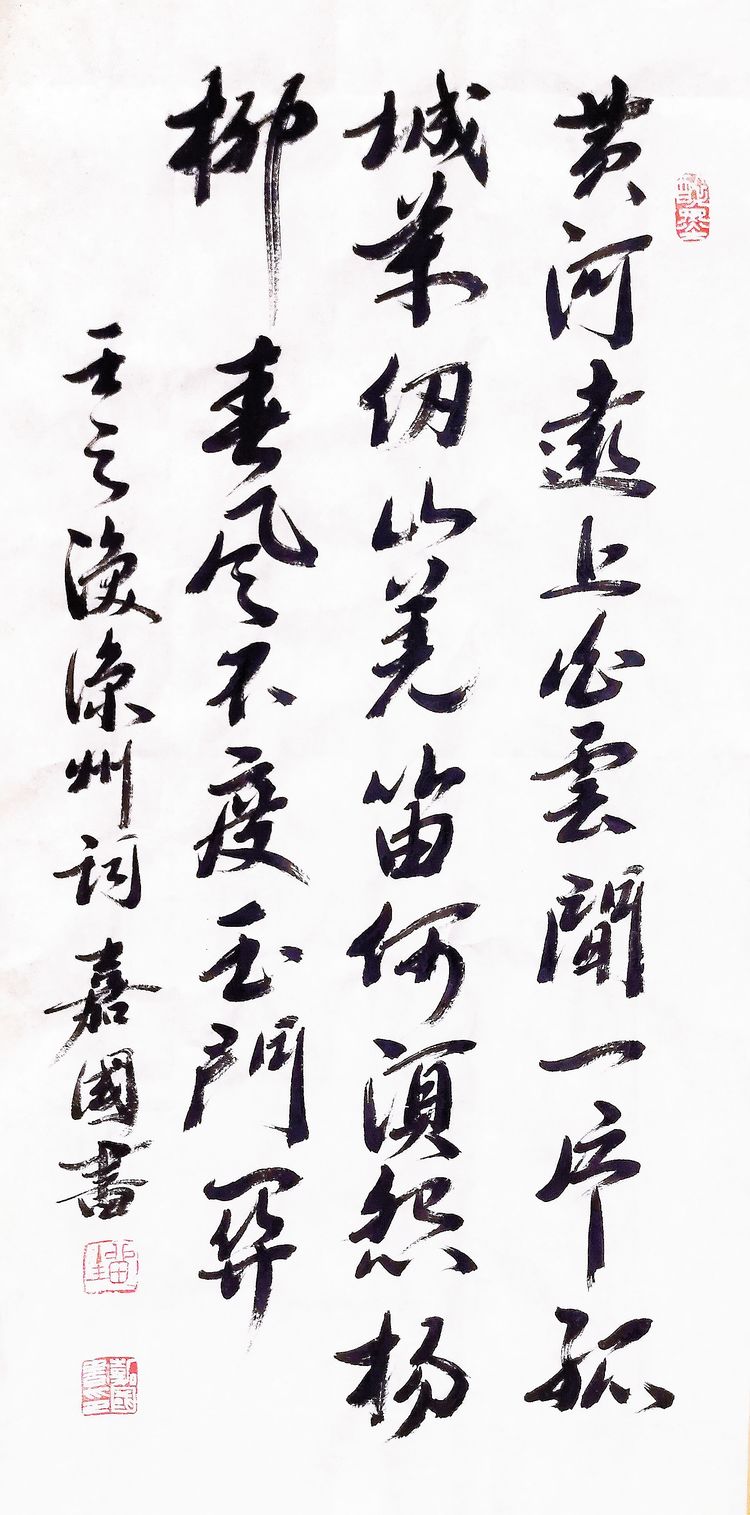 黄河遠上白雲間一片孤
城萬仞山羌笛何須怨楊
柳春風不度玉門關
王之渙涼州詞嘉國書